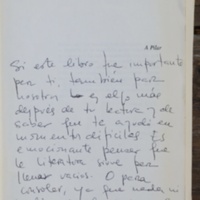 A Pilar
Si este libro fue importante
para ti, también para
nosotros lo es ello más
después de tu lectura y de
saber que te ayudó en
momentos difíciles. Es
emocionante pensar que
la literatura sirve para
llenar vacíos. O para
consolar, ya que nada ni